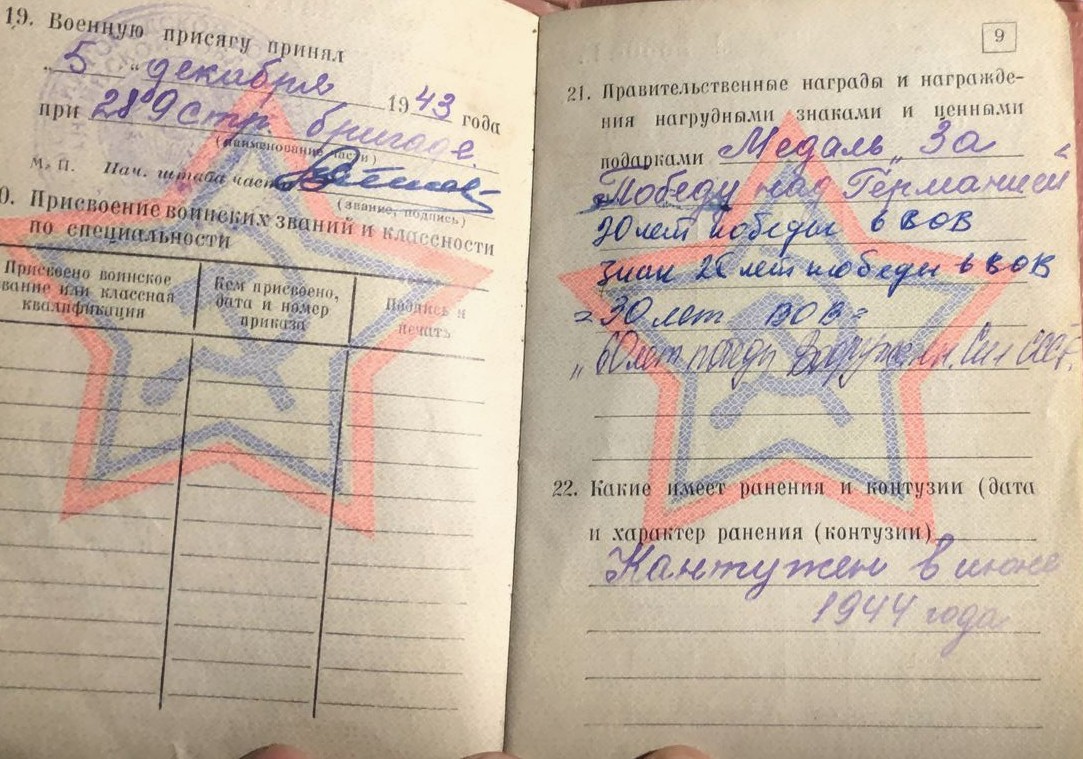 19. Военную присягу принял
„ 5 “ декабря 1943 года
при 289 стр. бригаде
(наименование части)
М. П. Нач. штаба части
(звание, подпись)
0. Присвоение воинских званий и классности
по специальности
Присвоено воинское
вание или классная
квалификация
Кем присвоено,
дата и номер
приказа
Подпись и
печать
9
21. Правительственные награды и награжде-
ния нагрудными знаками и ценными
подарками Медаль „За
Победу над Германией“
20 лет победы в ВОВ
Знак 25 лет победы в ВОВ
= 30 лет ВОВ =
„60 лет Вооружен. Сил СССР.
22. Какие имеет ранения и контузии (дата
и характер ранения (контузии)
Кантужен в июне
1944 года